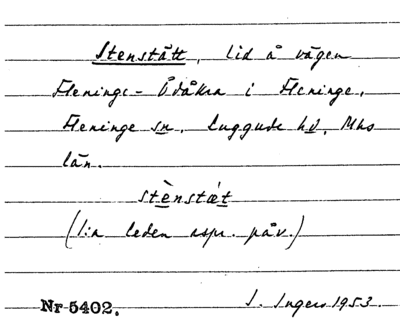 Stenstätt, lid å vägen
Fleninge - Ödåkra i Fleninge,
Fleninge sn, Luggude hd, Mhs
län.
stènstæt
(1:a leden uspr. påv.)
Nr 5402. I. Ingers 1953.